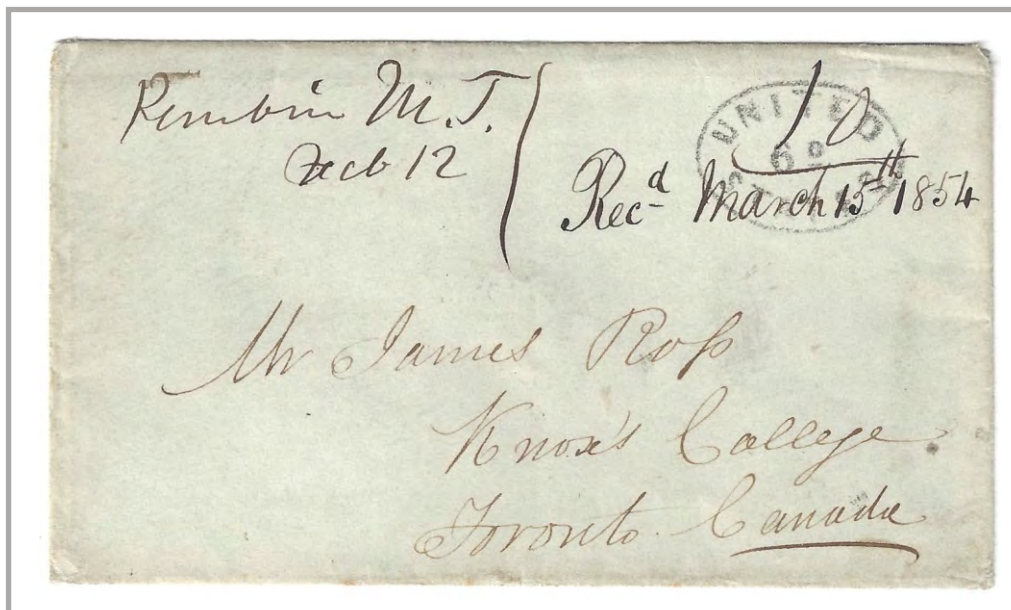 Pembina M.T.
Feb 12
10
UNITED
6d
STATES
Recd March 15th 1854
Mr James Roſs
Knox's College
Toronto. Canada